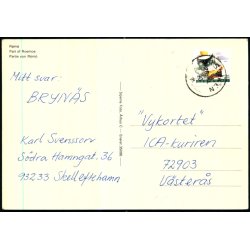 Rämö
Part of Roemoe
Partie von Römö
Mitt svar:
BRYNÄS
Karl Svensson
Södra Hamngat. 36
93233 Skelleftehamn
"Vykortet"
ICA-kuriren
72903
Västerås